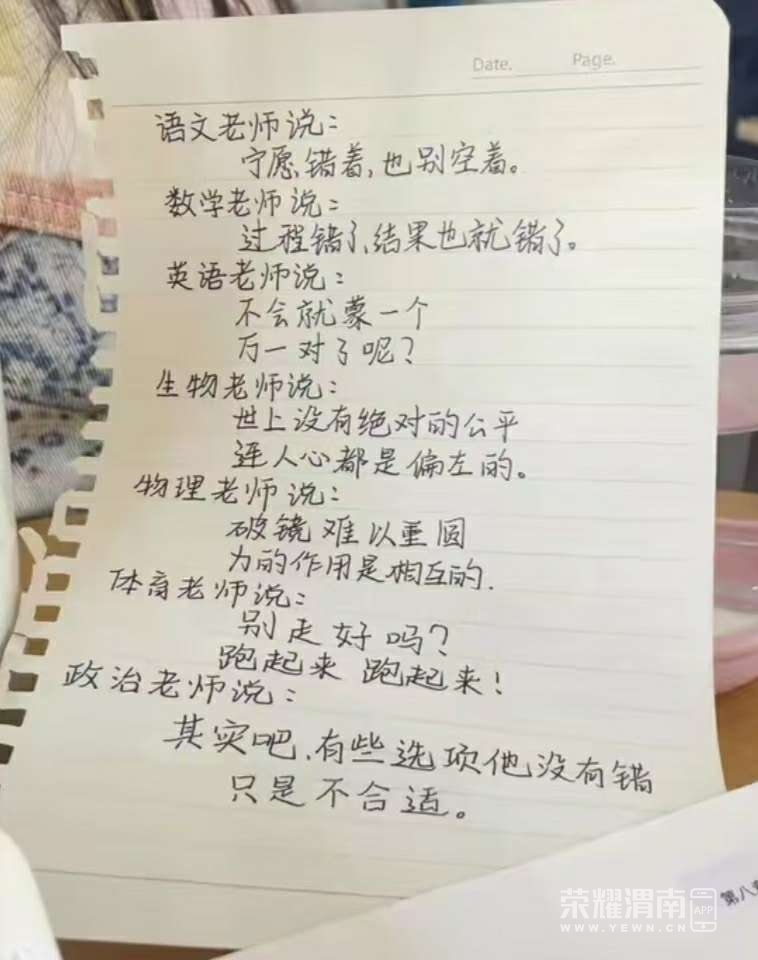 Date.
Page.
语文老师说：
宁愿错着,也别空着。
数学老师说：
过程错了,结果也就错了。
英语老师说：
不会就蒙一个
万一对了呢？
生物老师说：
世上没有绝对的公平
连人心都是偏左的。
物理老师说：
破镜难以重圆
力的作用是相互的.
体育老师说：
别走好吗？
跑起来 跑起来！
政治老师说：
其实吧,有些选项他没有错
只是不合适。
第八
荣耀渭南APP
WWW.YEWN.CN